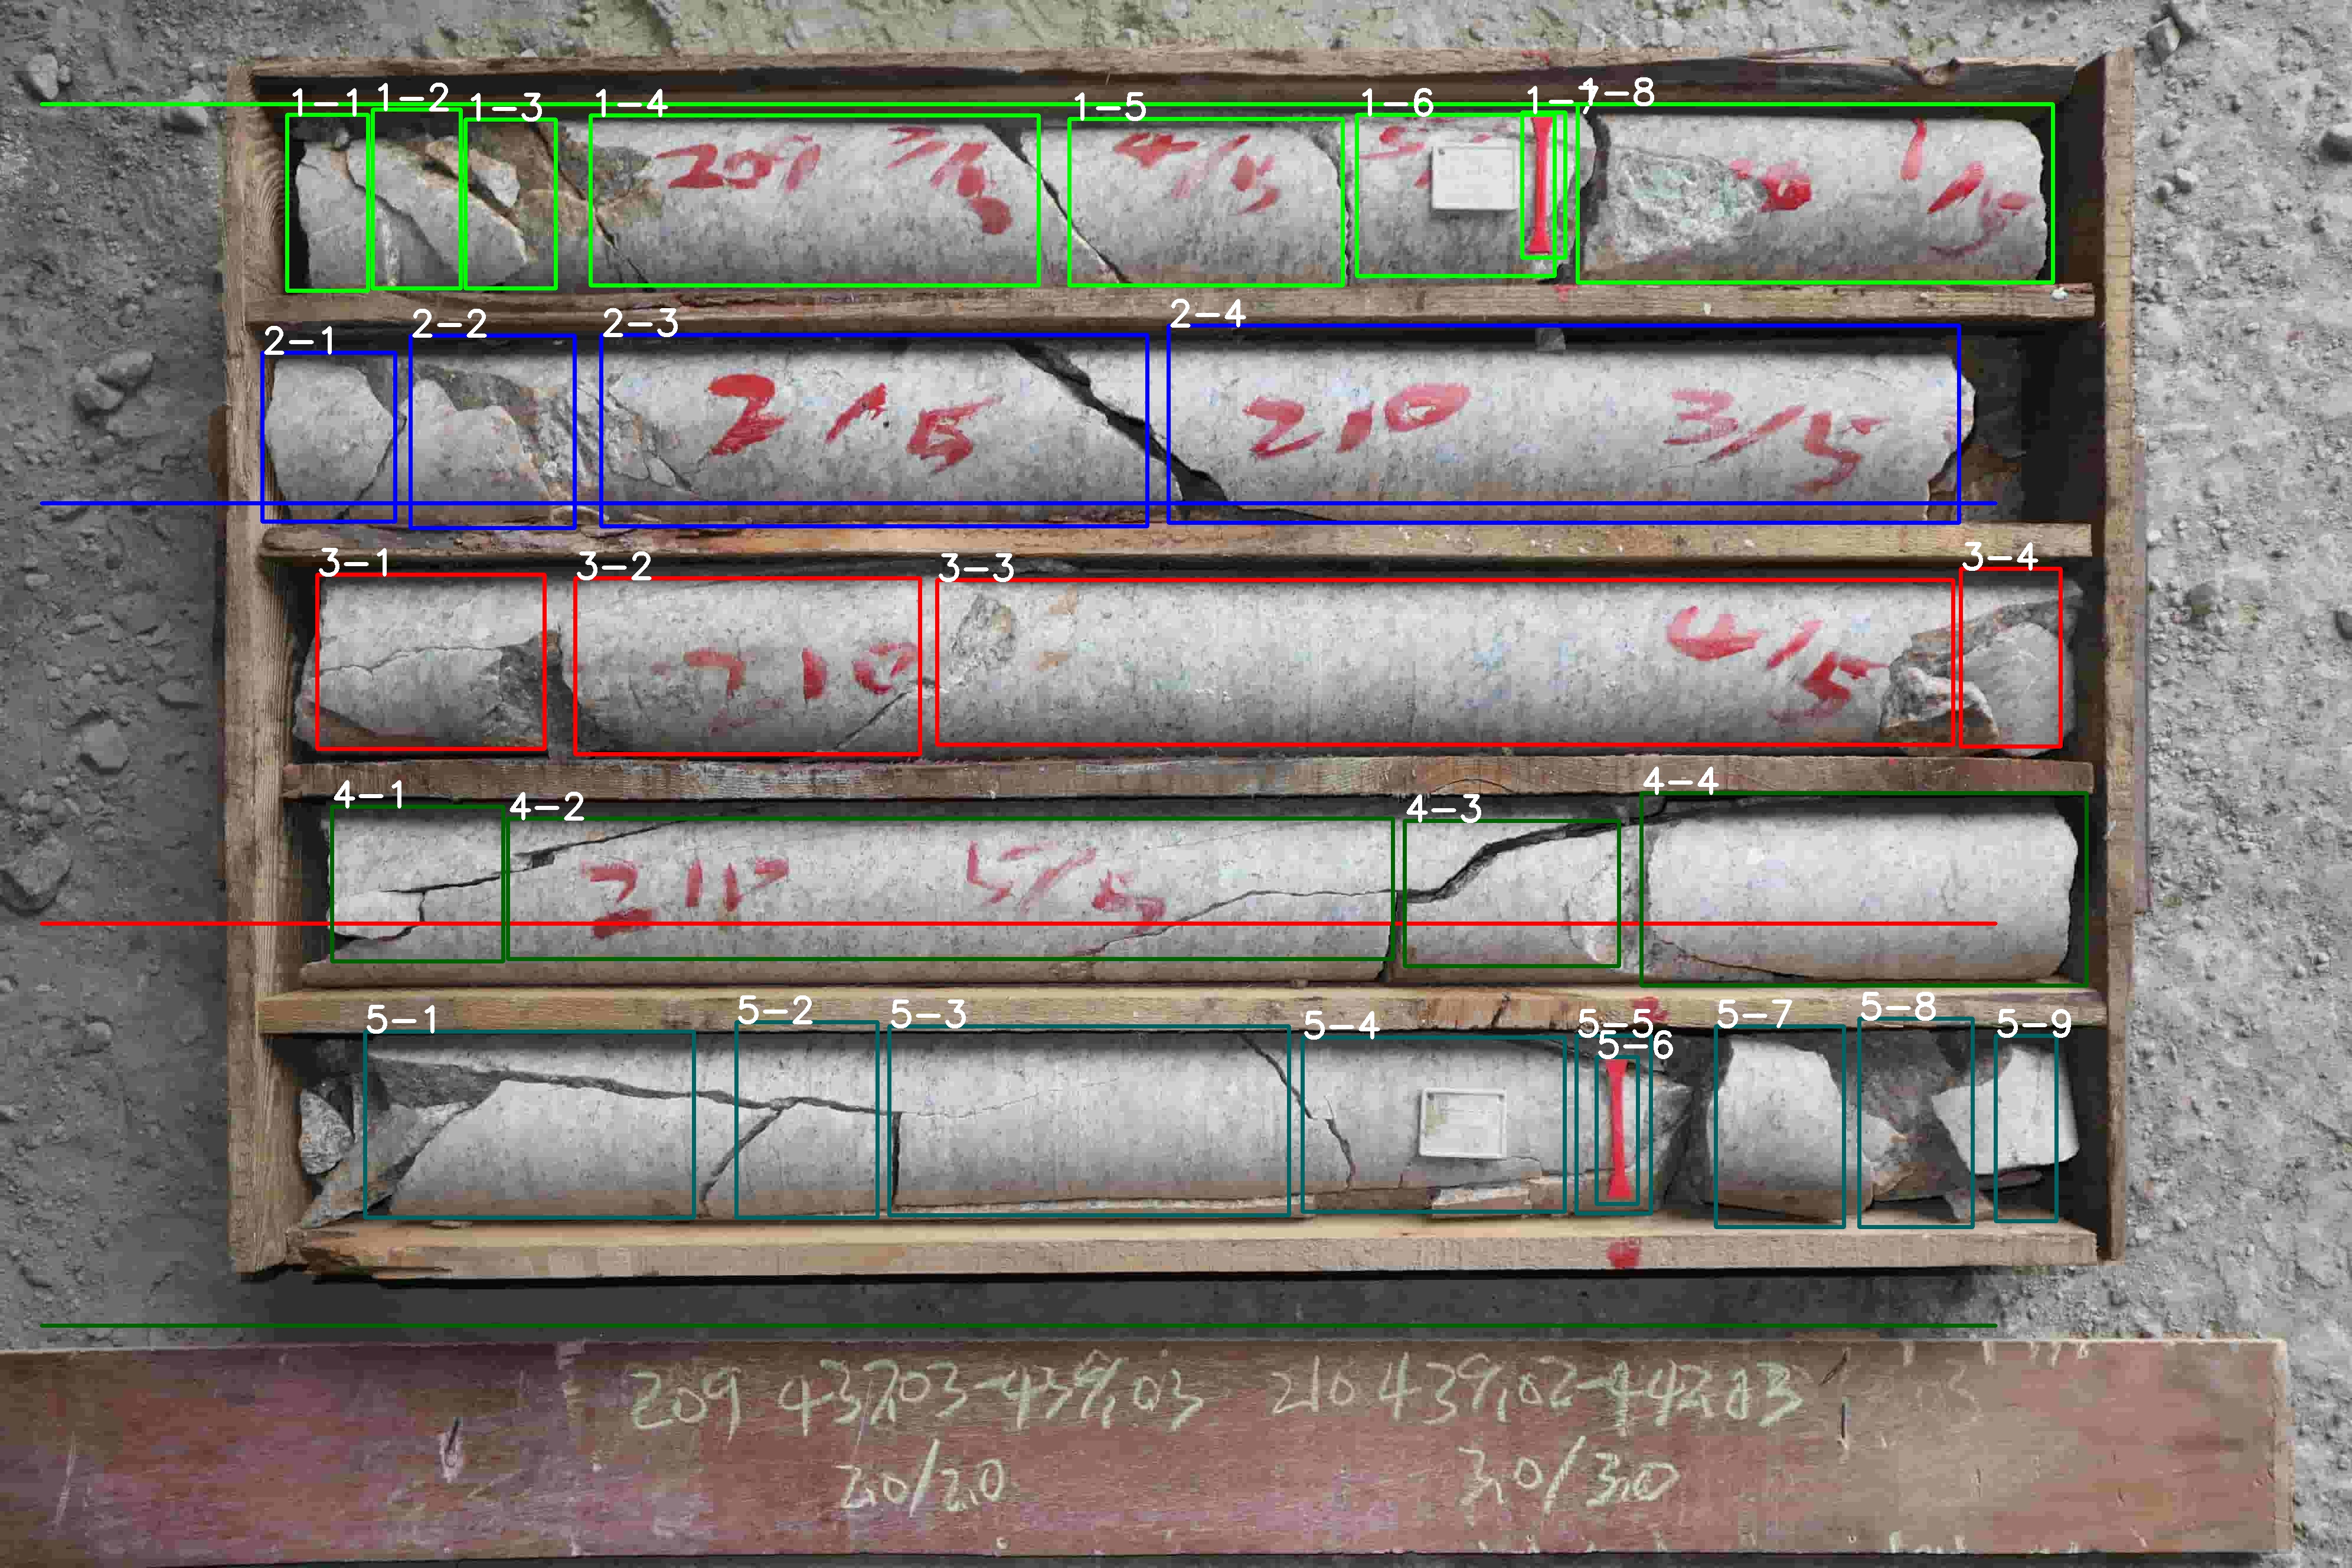 1-1 1-2 1-3 1-4 1-5 1-6 1-7 1-8
209 3/5 4/5 1/5
2-1 2-2 2-3 2-4
2/5 210 3/5
3-1 3-2 3-3 3-4
210 4/5
4-1 4-2 4-3 4-4
210 5/5
5-1 5-2 5-3 5-4 5-5 5-6 5-7 5-8 5-9
209 437.03-439.03 210 439.02-442.03
2.0/2.0 3.0/3.0